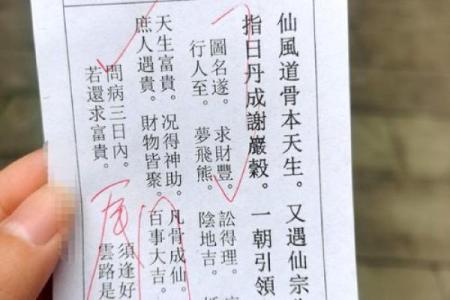 仙風道骨本天生。又遇仙宗
指日丹成謝巖穀。一朝引領
圖名遂。求財豐。訟得理。
行人至。夢飛熊。陰地吉。
天生富貴。況得神助。凡骨成仙。
庶人遇貴。財物皆聚。百事大吉。
問病三日內。須逢好
若還求富貴。雲路是